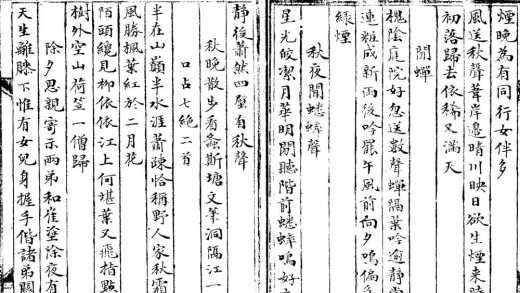 煙晚為有同行女伴多
風送秋聲葦岸邊晴川映日欲生煙来時
初落歸去依稀又滿天
聞蟬
槐陰庭院好忽送數聲蟬隔葉吟逾靜
連糚成新雨後吟罷午風前向夕鳴偏
綠煙
秋夜聞蟋蟀聲
星光皎潔月華明閒聽階前蟋蟀鳴好
靜後蕭然四壁有秋聲
秋晚散步看螽斯塘文筆洞隔江一
口占七絕二首
半在山巔半水涯蕭疎恰稱野人家秋霜
風勝楓葉紅於二月花
陌頭纔見柳依依江上何堪葉又飛指點
樹外空山荷笠一僧歸
除夕思親寄示兩弟和崔塗除夜有
天生雖膝下惟有女兒身握手偕諸弟關